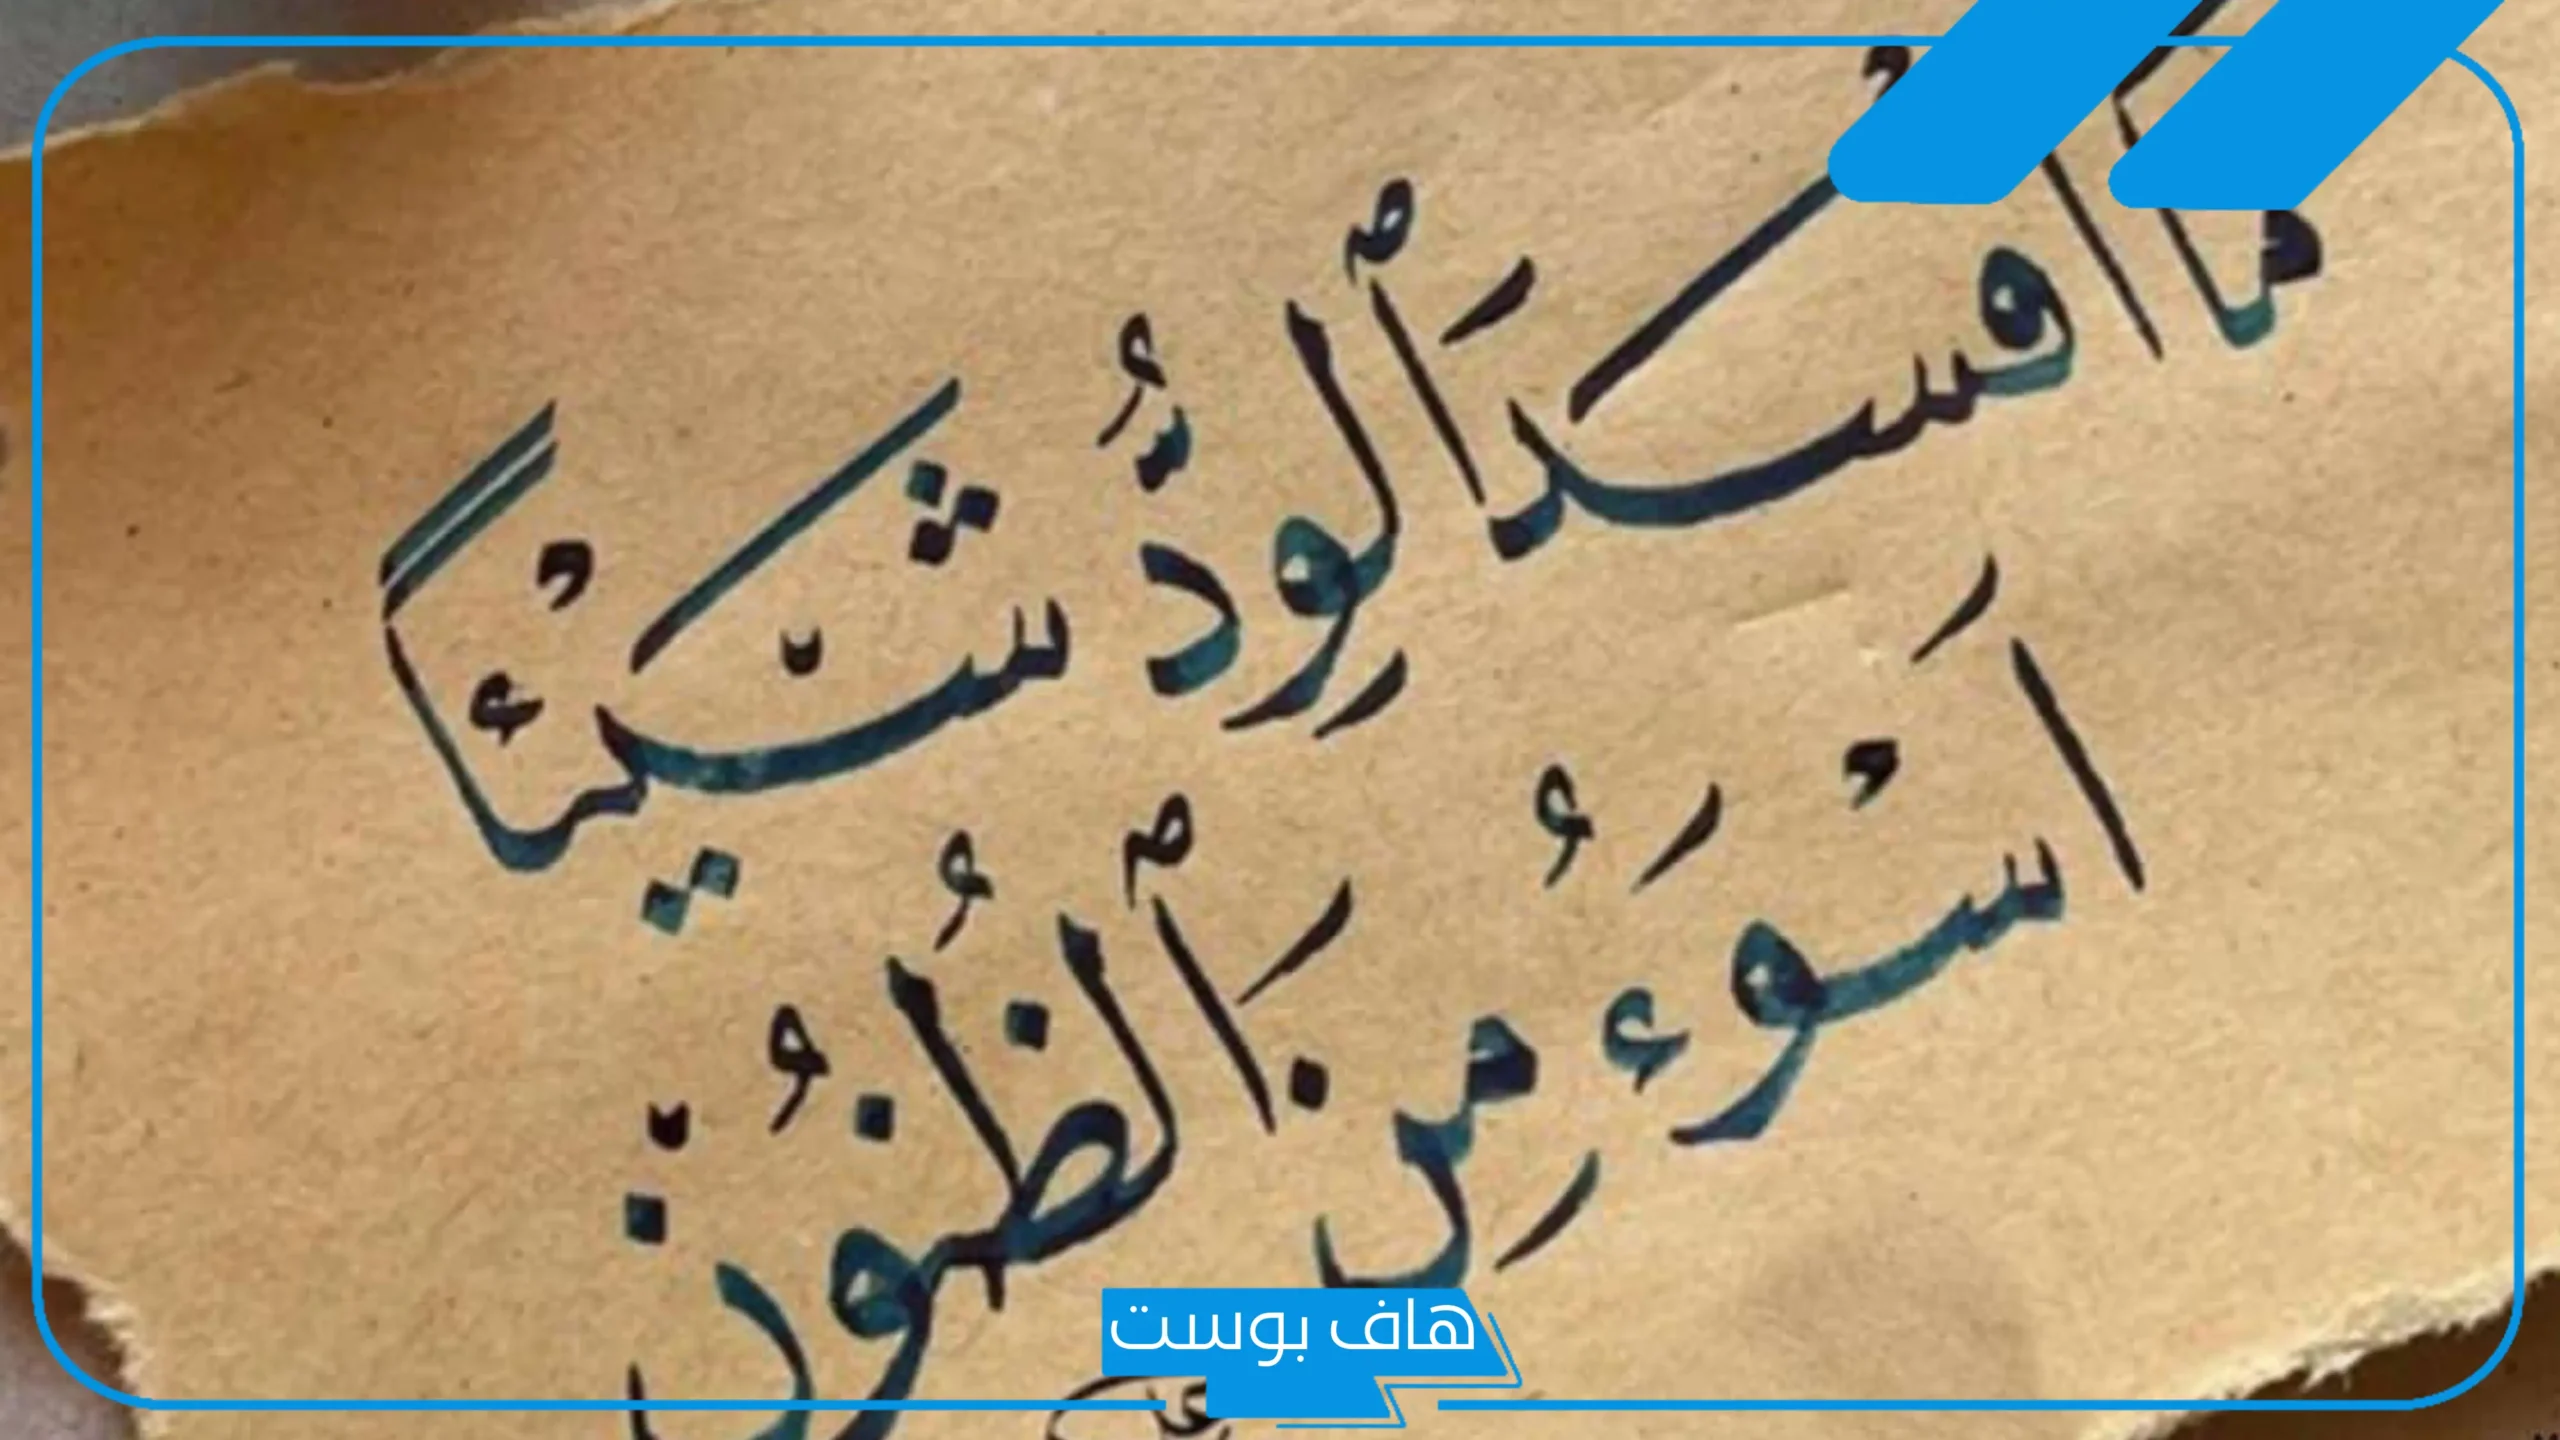 ما افسدَ ٱلوِدُّ شَيْئًا
اَسْوَءُ مِنَ ٱلظُنُون
هاف بوست